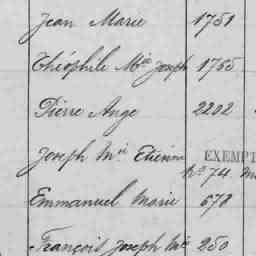 Jean Marie 1751
Théophile Mie Joseph 1765
Pierre Ange 2202
Joseph Mie Etienne EXEMPT
No 74.
Emmanuel Marie 578
François Joseph Mie 250